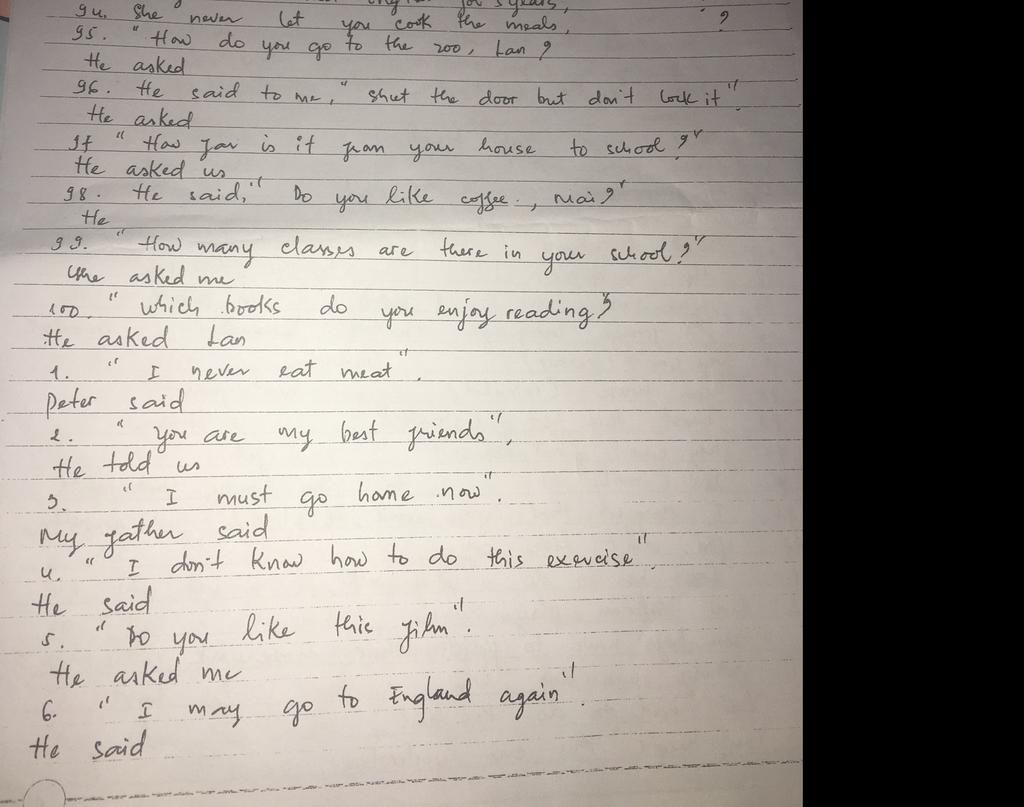 for 5 years,
94. She never let you cook the meals, ?
95. " How do you go to the zoo, Lan ?
He asked
96. He said to me, " shut the door but don't lock it".
He asked
97 " How far is it from your house to school ?"
He asked us
98. He said, " Do you like coffee, Mai ?"
He
99. " How many classes are there in your school ?"
She asked me
100. " which books do you enjoy reading ?
He asked Lan
1. " I never eat meat".
Peter said
2. " you are my best friends",
He told us
3. " I must go home now".
My father said
4. " I don't know how to do this exercise".
He said
5. " Do you like this film".
He asked me
6. " I may go to England again".
He said